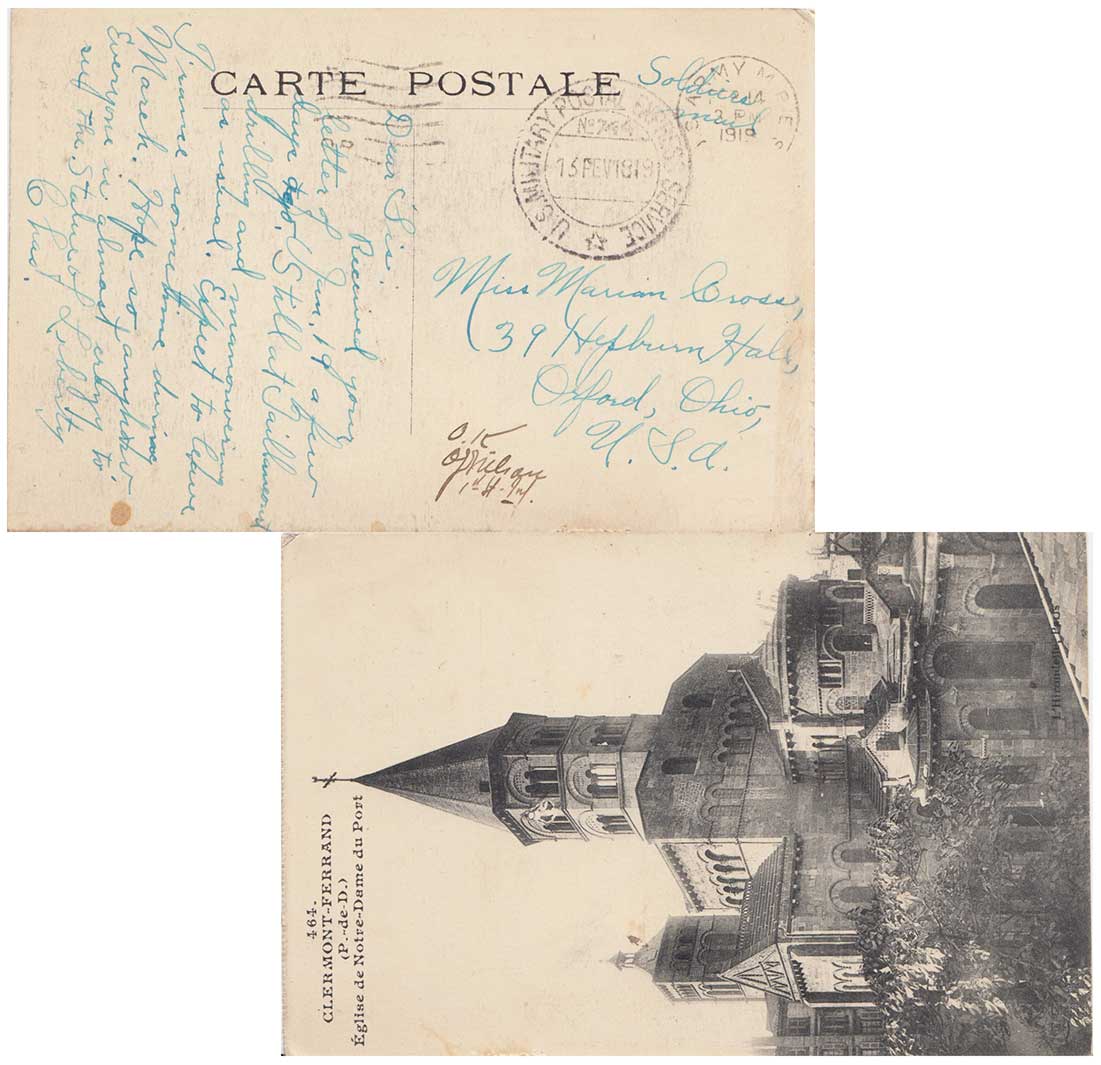 CARTE POSTALE
Soldiers
mail
ARMY M.P.E.S
2 PM
1919
U.S. MILITARY POSTAL EXPRESS SERVICE
No
13 FEV 1919
Dear Sis:
Received your
letter of Jan. 19 a few
days ago. Still at
drilling and manouvering
as usual. Expect to leave
France sometime during
March. Hope so anyhow
Everyone is almost crazy to
see the Statue of Liberty
Chas.
Miss Marian Cross,
39 Hepburn Hall,
Oxford, Ohio,
U. S. A.
O.K
1st Lt. Inf.
464.
CLERMONT-FERRAND
(P.-de-D.)
Église de Notre-Dame du Port
L'Hirondelle, Paris